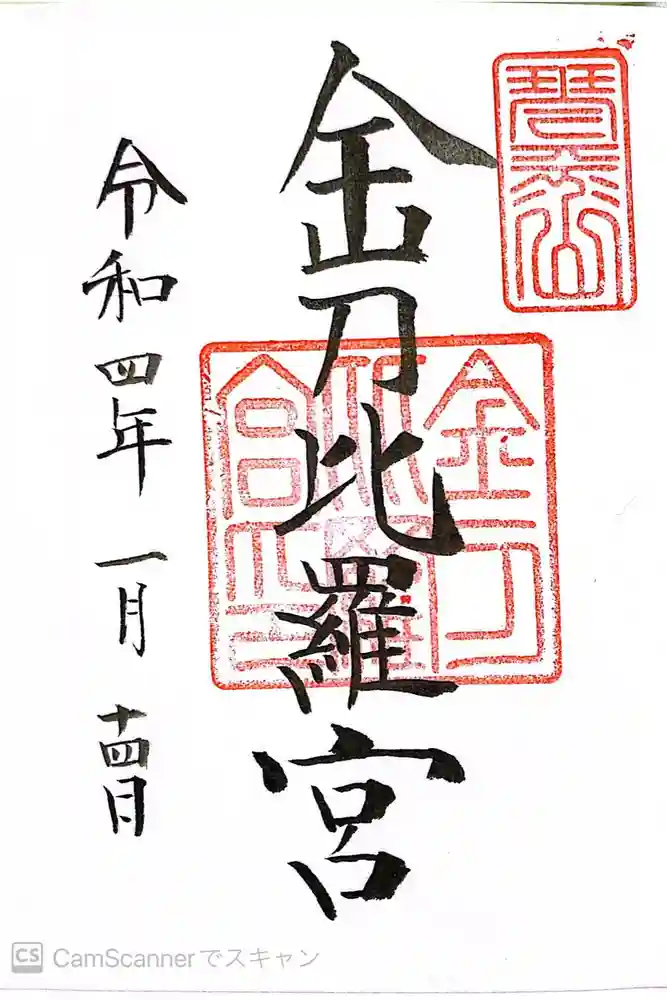 琴平山
金刀比羅宮
令和四年 一月 十四日
CS CamScannerでスキャン